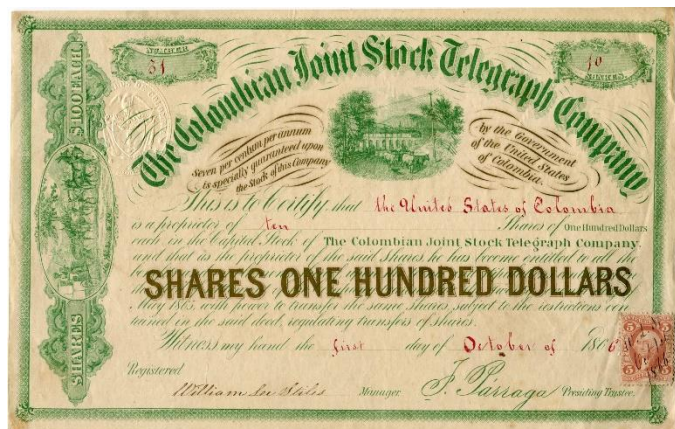 NUMBER
31
10
SHARES
$100 EACH
SHARES
The Colombian Joint Stock Telegraph Company
Seven per centum per annum
is specially guaranteed upon
the Stock of this Company
by the Government
of the United States
of Colombia.
This is to Certify that the United States of Colombia
is a proprietor of ten Shares of One Hundred Dollars
each in the Capital Stock of The Colombian Joint Stock Telegraph Company.
and that as the proprietor of the said shares he has become entitled to all the
SHARES ONE HUNDRED DOLLARS
May 1865, with power to transfer the same shares subject to the restrictions con
tained in the said deed, regulating transfers of shares.
Witness my hand the first day of October of 186
Registered
William Lee Stiles Manager. F. Párraga Presiding Trustee.
5 5
5 5